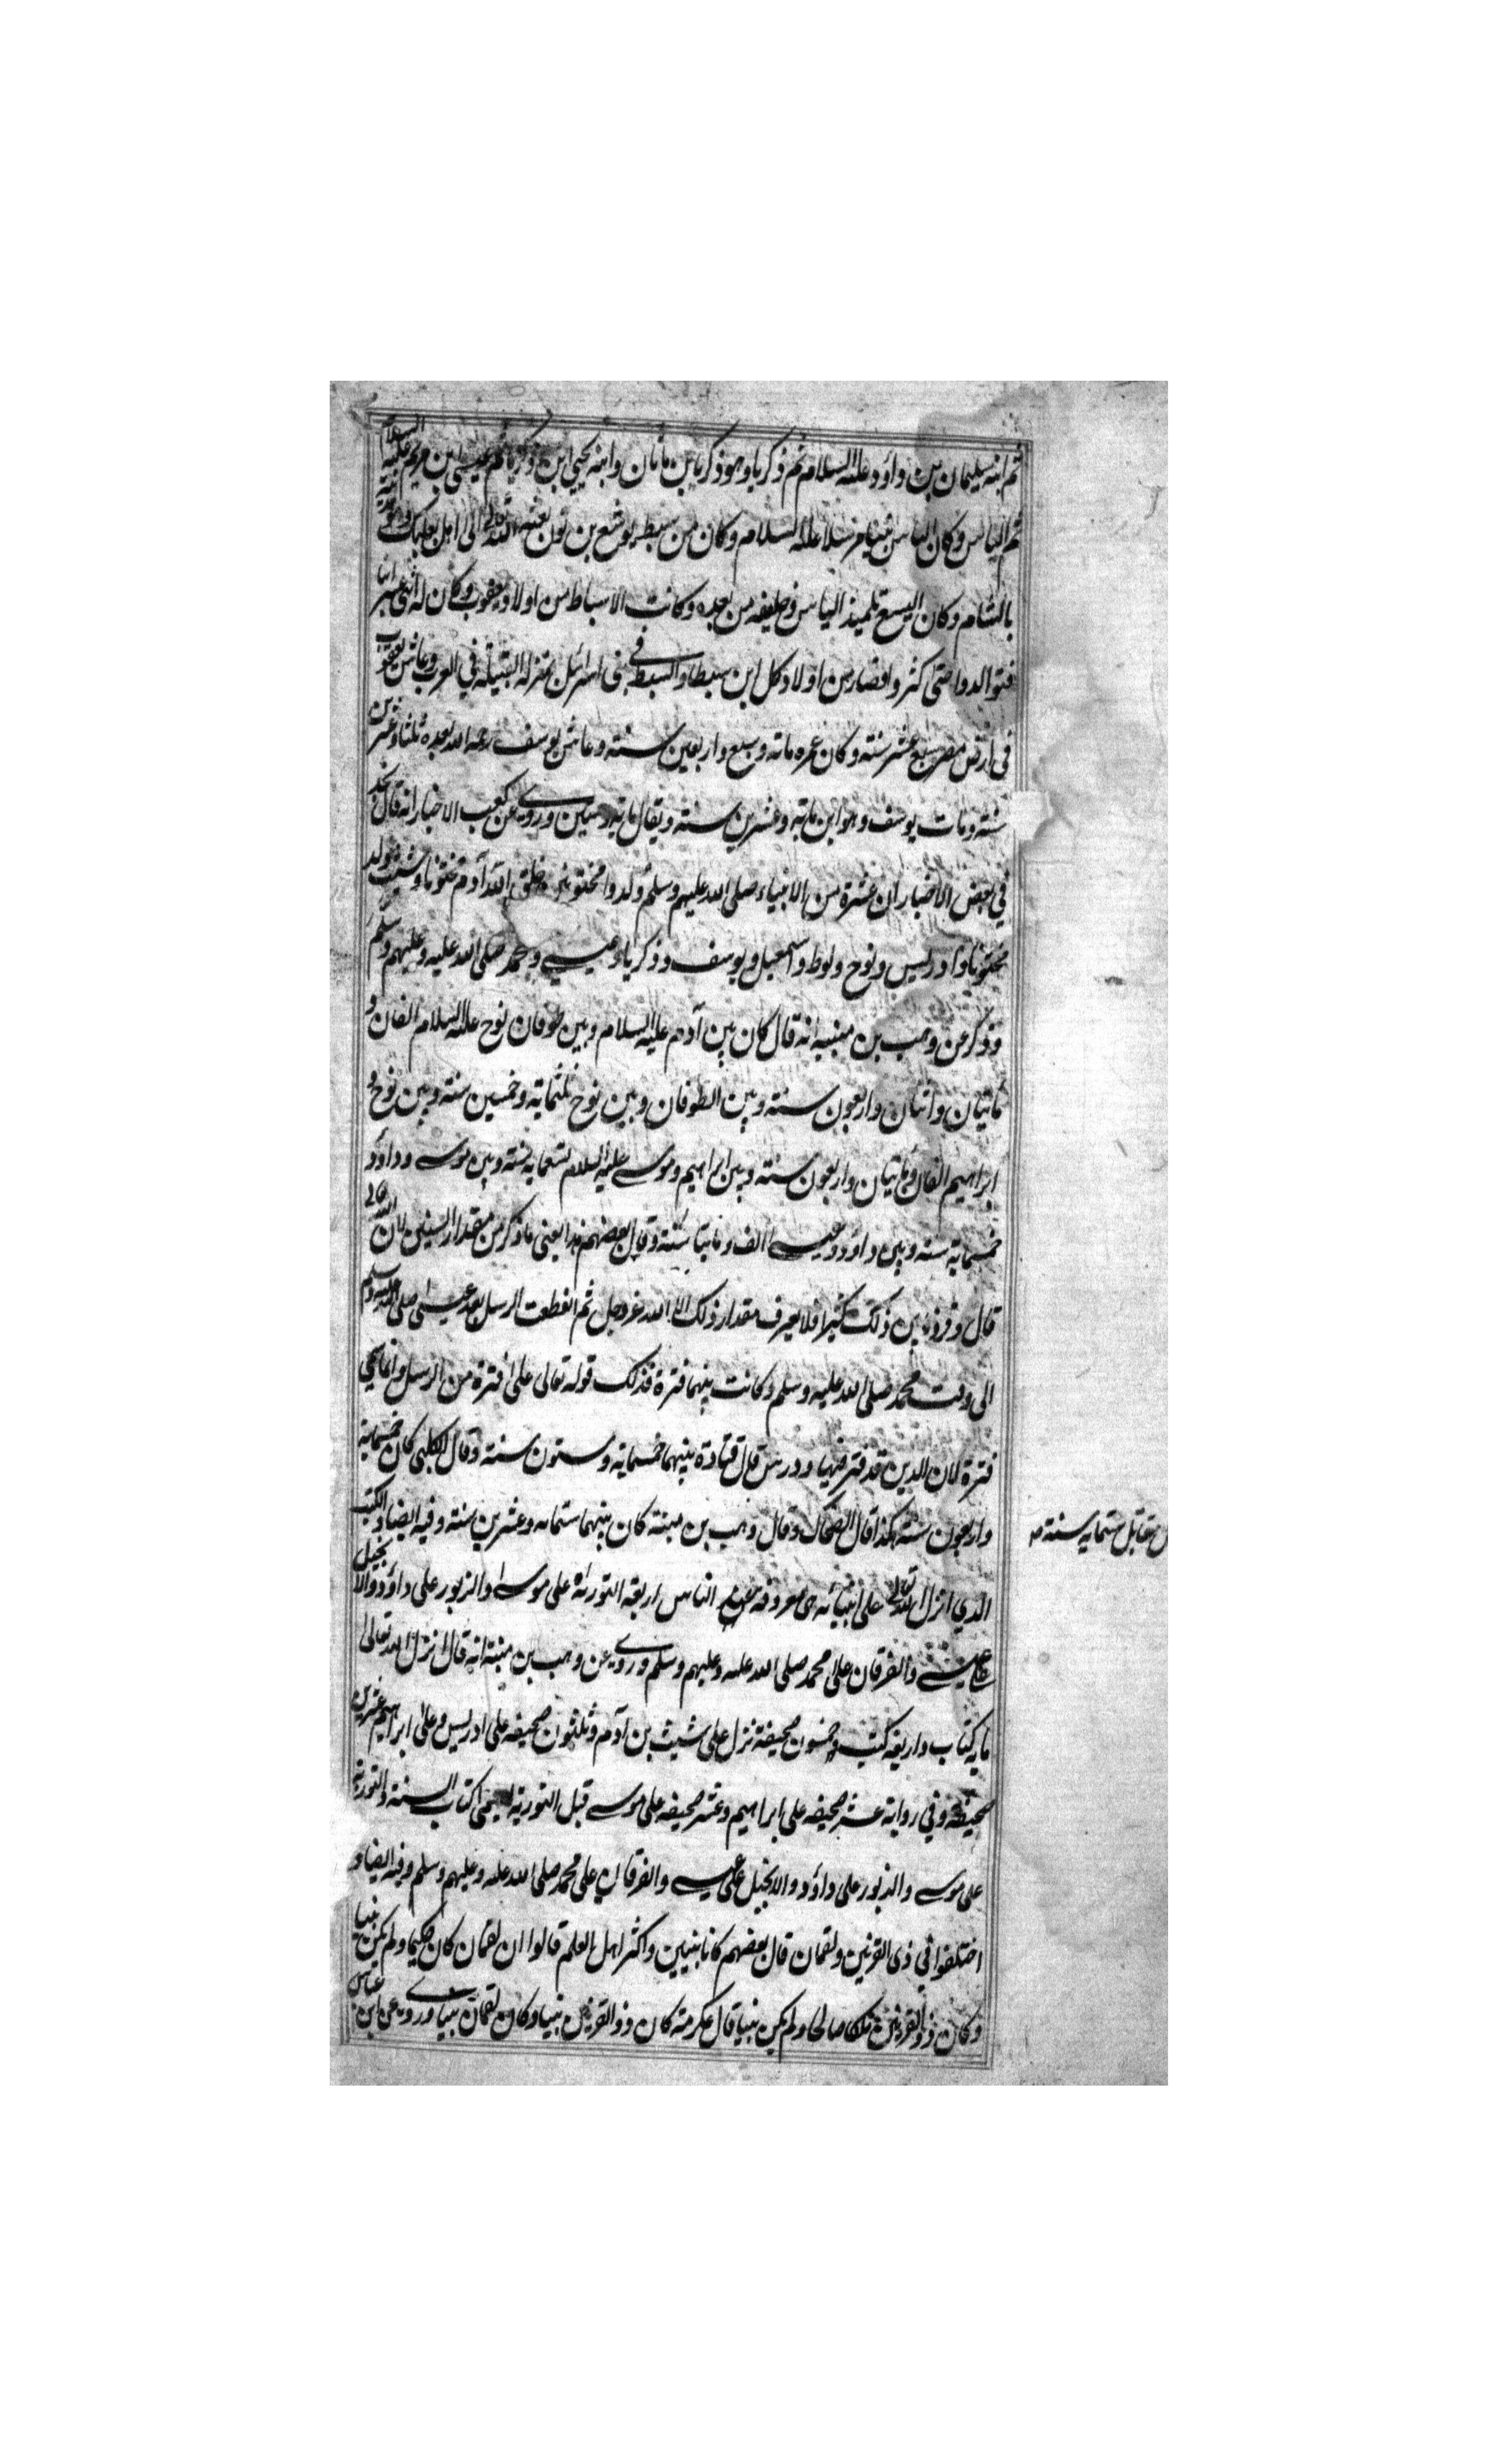 ثم ابنه سليمان بن داود عليه السلام ثم ذكريا وهو ذكريا بن ماثان وابنه يحيى ابن ذكريا ثم عيسى ابن مريم عليه السلام
ثم الياس وكان الياس نبيا مرسلا عليه السلام وكان من سبط يوشع بن نون بعثه الله تعالى الى اهل بعلبك
بالشام وكان اليسع تلميذ الياس وخليفه من بعده وكانت الاسباط من اولاد يعقوب وكان له اثنى عشر ابنا
فتوالدوا حتى كثروا فصار من اولاد كل ابن سبطا والسبط في بنى اسرائل بمنزلة القبيلة في العرب وعاش يعقوب
في ارض مصر سبع عشر سنة وكان عمره مائة وسبع واربعين سنة وعاش يوسف رحمه الله بعده ثلثا وعشرين
سنة ومات يوسف وهو ابن ماية وعشرين سنة ويقال ماية وستين وروى عن كعب الاخبار انه قال نجد
في بعض الاخبار ان عشرة من الانبياء صلى الله عليهم وسلم ولدوا مختونين خلق الله آدم مختونا وشيث ولد
مختونا وادريس ونوح ولوط واسمعيل ويوسف وذكريا وعيسى ومحمد صلى الله عليه وعليهم وسلم
وذكر عن وهب بن منبه انه قال كان بين آدم عليه السلام وبين طوفان نوح عليه السلام الفان و
مائتان واثنان واربعون سنة وبين الطوفان وبين نوح ثلثماية وخمسين سنة وبين نوح و
ابراهيم الفان ومائتان واربعون سنة وبين ابراهيم وموسى عليه السلام تسعماية سنة وبين موسى وداود
خمسماية سنة وبين داود وعيسى الف ومايتا سنة وقال بعضهم هذا يعنى ما ذكر من مقدار السنين لان الله تعالى
قال وقرونا بين ذلك كثيرا فلا يعرف مقدار ذلك الا الله عز وجل ثم انقطعت الرسل بعد عيسى صلى الله عليه وسلم
الى وقت محمد صلى الله عليه وسلم وكانت بينهما فترة فذلك قوله تعالى على فترة من الرسل وانما سمي
فترة لان الدين قد فتر فيها ودرس قال قتادة بينهما خمسماية وستون سنة وقال الكلبى كان خمسماية
واربعون سنة هكذا قال الضحاك وقال وهب بن منبه كان بينهما ستماية وعشرين سنة وفيه ايضا والكتب
مقاتل ستماية سنة
الذي انزل الله تعالى على انبيائه هى معروفة عند الناس اربعة التورية على موسى والزبور على داود والانجيل
على عيسى والفرقان على محمد صلى الله عليه وعليهم وسلم وروى عن وهب بن منبه انه قال انزل الله تعالى
ماية كتاب واربعة كتب وخمسون صحيفة نزل على شيث بن آدم وثلثون صحيفة على ادريس وعلى ابراهيم عشرين
صحيفة وفي رواية عشر صحيفة على ابراهيم وعشر صحيفة على موسى قبل التورية يسمى كتاب السنة والتورية
على موسى والزبور على داود والانجيل على عيسى والفرقان على محمد صلى الله عليه وعليهم وسلم وفيه ايضا و
اختلفوا في ذى القرنين ولقمان قال بعضهم كانا نبيين واكثر اهل العلم قالوا ان لقمان كان حكيما ولم يكن نبيا
وكان ذو القرنين ملكا صالحا ولم يكن نبيا قال عكرمة كان ذو القرنين نبيا وكان لقمان نبيا وروى عن ابن عباس